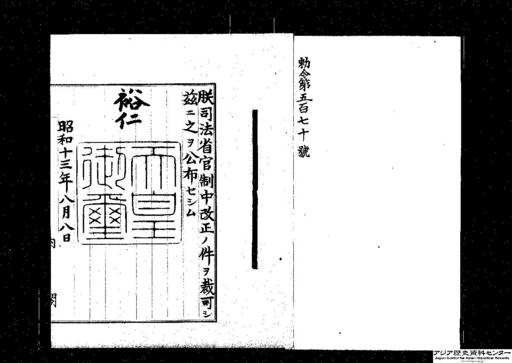 勅令第五百七十號
朕司法省官制中改正ノ件ヲ裁可シ
茲ニ之ヲ公布セシム
裕仁
天皇
御璽
昭和十三年八月八日
内閣
アジア歴史資料センター
Japan Center for Asian Historical Records